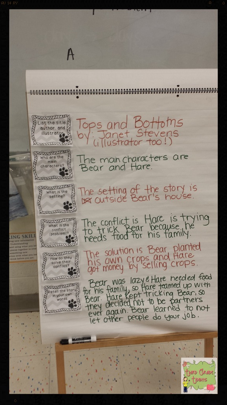 A
Tops and Bottoms
by Janet Stevens
(illustrator too!)
The main characters are
Bear and Hare.
The setting of the story is
outside Bear's house
The conflict is Hare is trying
to trick Bear because he
needs food for his family.
The solution is Bear planted
his own crops and Hare
got money by selling crops.
Bear was lazy & Hare needed food
for his family, so Hare teamed up with
Bear. Hare kept tricking Bear, so
they decided not to be partners
ever again. Bear learned to not
let other people do your job.